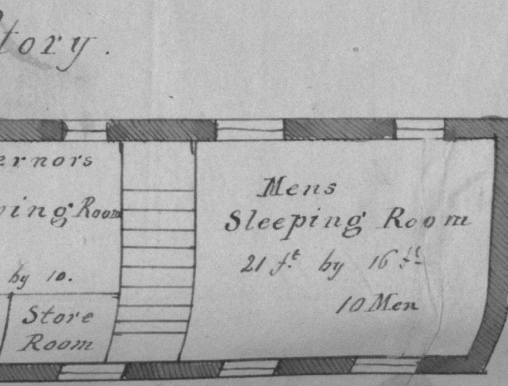 tory.
ernors
ping Room
by 10.
Store
Room
Mens
Sleeping Room
21 ft by 16 ft
10 Men